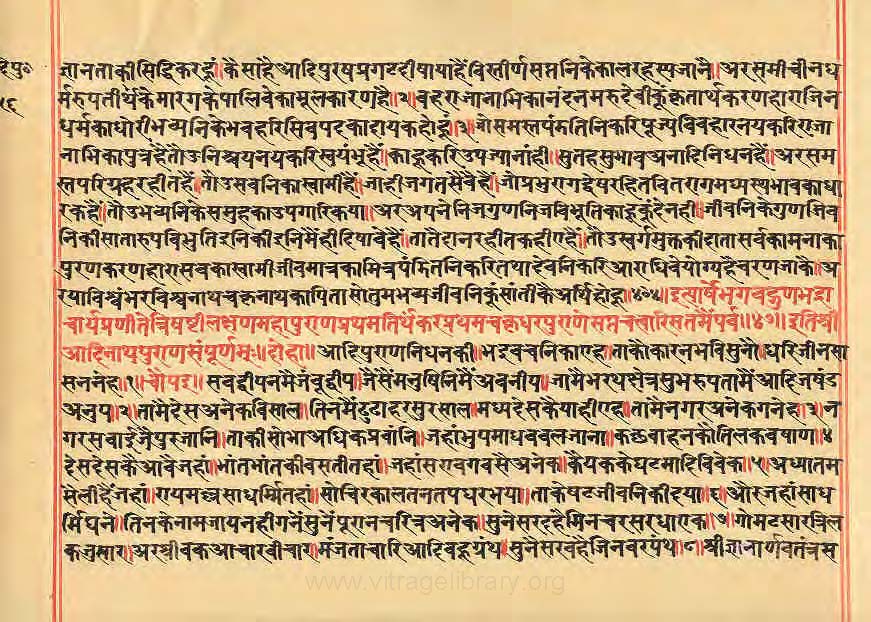 ज्ञानताकीसिद्धिकरहूं॥कैसाहैआदिपुरषप्रगटदीषायाहैविस्तीर्णसप्तनिकेकालरहस्यजानै॥अरसमीचीनध
र्मरुपतीर्थकेमारगकेपालिवेकामूलकारणहै॥२॥वहराजानाभिकानंदनमरुदेवीकुंकृतार्थकरणहाराजिन
धर्मकाधोरीभव्यनिकेभवहरिसिवपदकादायकहोहूं॥३॥जोसमस्तपंडितिनिकरिपूज्यविवहारनयकरिराजा
नाभिकापुत्रहैतौउनिश्चयनयकरिस्वयंभूहैं॥काहूकरिउपज्यानांही॥सुतहसुभावअनादिनिधनहै॥अरसम
स्तपरिग्रहरहीतहै॥तौउसबनिकास्वामीहै॥जाहीजगतसेवैहै॥जोप्रभुरागद्वेषरहितवितरागमध्यस्थभावकाधा
रकहै॥तौउभव्यनिकेसमुहकाउपगारिकया॥अरअपनेनिजगुणनिजविभूतिकाहूकुंदेनही॥जीवनिकेगुणजिव
निकीसातारुपविभुतिइनिकीइनिमैहीदिषावैहै॥तातैदानरहीतकहीएहै॥तौउस्वर्गमुक्तकीदातासर्वकामनाका
पुरणकरणहारासबकास्वामीजीवमात्रकामित्रपंडितनिकरितथादेवनिकरिआराधिवेयोग्यहैचरणजाकै॥अ
रयाविश्वंभरविश्वनाथचक्रनाथकापितासोतुमभव्यजीवनिकुंसांतीकैअर्थिहोहु॥४०४॥इत्यार्षेभगवद्गुणभद्रा
चार्यप्रणीतेत्रिषष्टीलक्षणमहापुराणप्रथमतिर्थकरप्रथमचक्रधरपुराणेसप्तचत्वारिसतमैपर्व॥४७॥इतिश्री
आदिनाथपुराणसंपूर्णमः॥दोहा॥आदिपुराणनिधनकी॥भइवचनिकाएह॥ताकौकारनभविसुनौ॥धरिजीनसा
सननेह॥१॥चौपइ॥सबद्वीपनमैजंबूद्वीप॥जैसैंमनुषिनिमैंअवनीप॥जामैभरथक्षेत्रसुभरुपतामैंआदिजषंड
अनुप॥२॥तामैदेसअनेकविसाल॥तिनमैंढुंढाहरसुरसाल॥मध्यदेसकैयाहीएह॥तामैनगरअनेकगनेह॥३॥न
गरसवाईजैपुरजानि॥ताकीसोभाअधिकप्रवांनि॥जहांभुपमाधवबलजाना॥कछवाहनकौतिलकवषाण॥४
देसदेसकैआवैजहां॥भांतभांतकीवसतीतहां॥जहांसरावगवसैअनेक॥कैयककेघटमाहिविवेक॥५॥अध्यातम
सैलीहैंजहां॥रायमल्लसाधर्मितहां॥सोचिरकालतनतपधरभया॥ताकेषटजीवनिकीदया॥६॥औरजहांसाध
र्मिघने॥तिनकेनामजायनहीगनेंसुनेंपूरानचरित्रअनेक॥सुनेसरदहैमिनचरसरधाएक॥७॥गोमटसारत्रिल
कनुसार॥अरश्रीवकआचारवीचार॥मंजताचारिआदिबहूग्रंथ॥सुनैसरवहैजिनवरपंथ॥८॥श्रीज्ञानार्णवतंत्रस
www.vitragelibrary.org